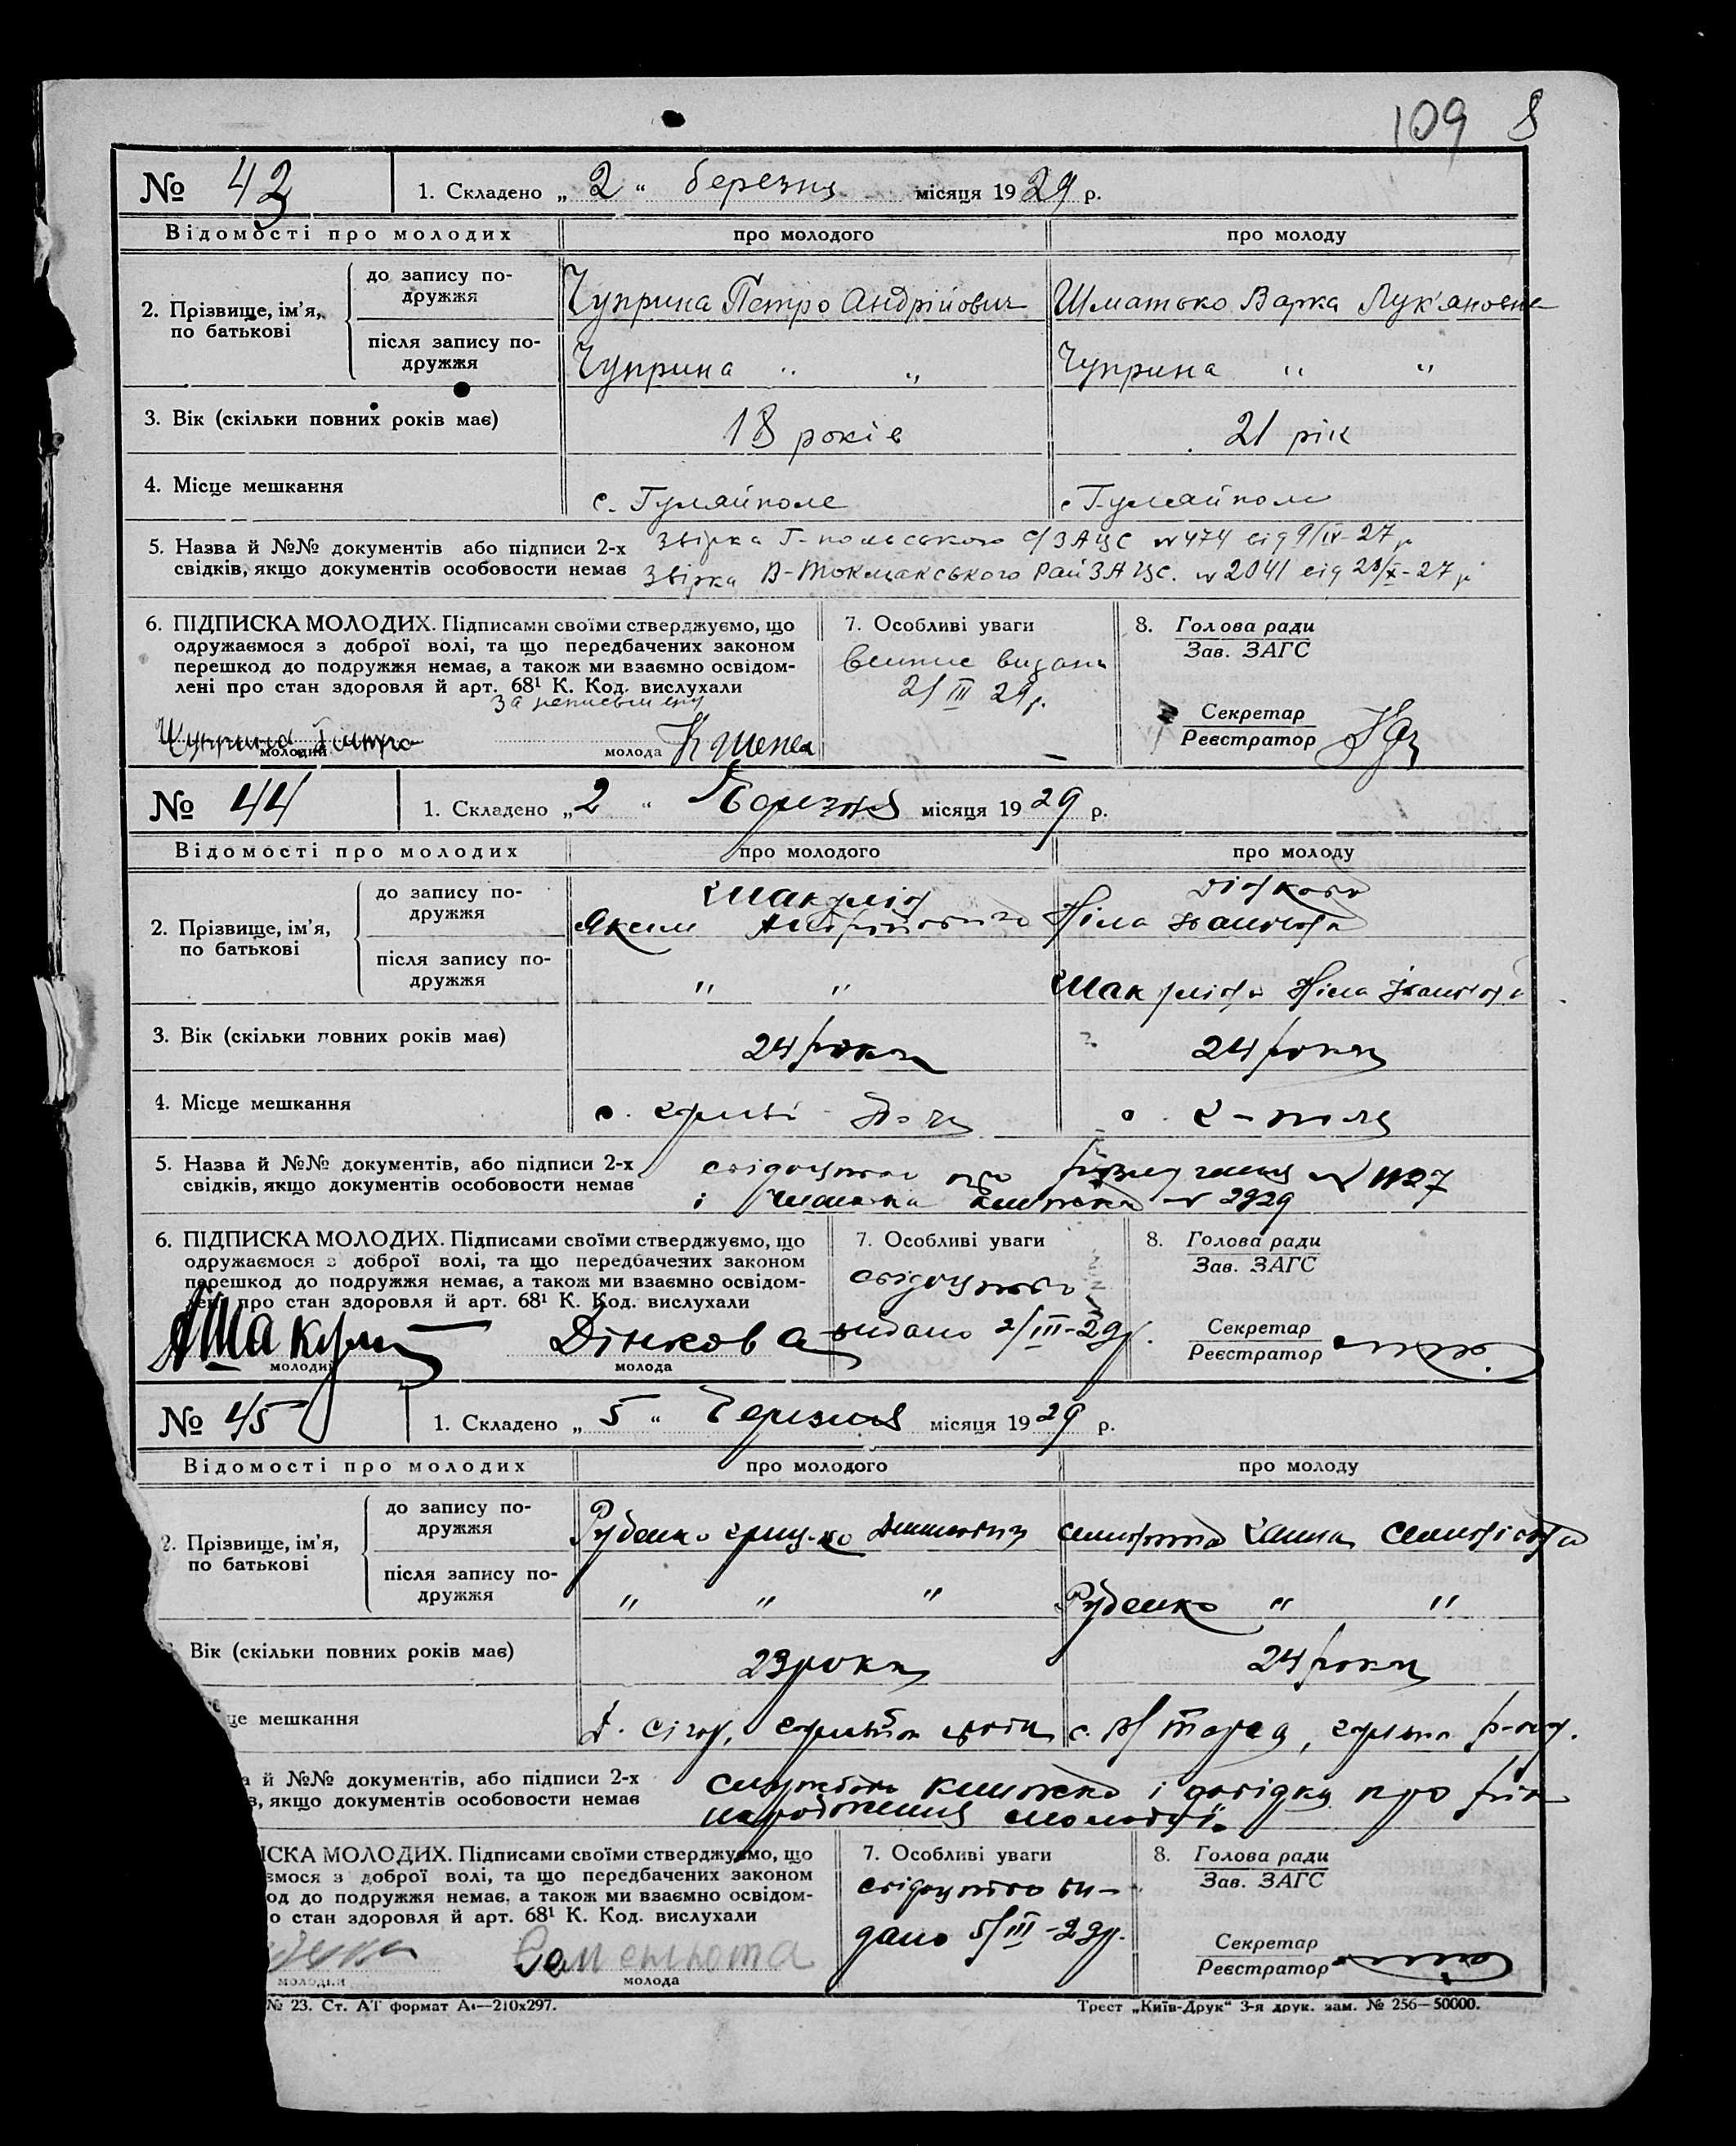 109 8
№ 43
1. Складено „ 2 “ березня місяця 1929 р.
Відомості про молодих
про молодого
про молоду
2. Прізвище, ім'я, по батькові
до запису по-
дружжя
Чуприна Петро Андрійович
Шматько Варка Лук'яновна
після запису по-
дружжя
Чуприна " "
Чуприна " "
3. Вік (скільки повних років має)
18 років
21 рік
4. Місце мешкання
с. Гуляйполе
с Гуляйполе
5. Назва й №№ документів або підписи 2-х
свідків, якщо документів особовости немає
Звірка Г-польського с/ЗАЦС № 474 від 9/IV-27 р
Звірка В-Токмакського РайЗАЦС. № 2041 від 28/X-27 р
6. ПІДПИСКА МОЛОДИХ. Підписами своїми стверджуємо, що
одружаємося з доброї волі, та що передбачених законом
перешкод до подружжя немає, а також ми взаємно освідом-
лені про стан здоровля й арт. 68¹ К. Код. вислухали
за неписьменну
Чуприна Петро
молодий
молода
7. Особливі уваги
видано
2/III 29 р.
8. Голова ради
Зав. ЗАГС
Секретар
Реєстратор
№ 44
1. Складено „ 2 “ Березня місяця 1929 р.
Відомості про молодих
про молодого
про молоду
2. Прізвище, ім'я,
по батькові
до запису по-
дружжя
Яким Андрійович
Діккова
Ніла Іванівна
після запису по-
дружжя
" "
Ніла Іванівна
3. Вік (скільки повних років має)
24 роки
24 роки
4. Місце мешкання
с. Г-поля
5. Назва й №№ документів, або підписи 2-х
свідків, якщо документів особовости немає
свідоцтво про розлучення № 1127
і книжка № 2929
6. ПІДПИСКА МОЛОДИХ. Підписами своїми стверджуємо, що
одружаємося з доброї волі, та що передбачених законом
перешкод до подружжя немає, а також ми взаємно освідом-
лені про стан здоровля й арт. 68¹ К. Код. вислухали
молодий
Дінкова
молода
7. Особливі уваги
свідоцтво
видано 2/III-29р.
8. Голова ради
Зав. ЗАГС
Секретар
Реєстратор
№ 45
1. Складено „ 5 “ Березня місяця 1929 р.
Відомості про молодих
про молодого
про молоду
2. Прізвище, ім'я,
по батькові
до запису по-
дружжя
Руденко Грицько
Ганна
після запису по-
дружжя
" " "
Руденко " "
Вік (скільки повних років має)
23 роки
24 роки
це мешкання
а й №№ документів, або підписи 2-х
в, якщо документів особовости немає
службова книжка і довідка про рік
народження молодої.
ІСКА МОЛОДИХ. Підписами своїми стверджуємо, що
ємося з доброї волі, та що передбачених законом
од до подружжя немає, а також ми взаємно освідом-
о стан здоровля й арт. 68¹ К. Код. вислухали
молодий
молода
7. Особливі уваги
свідоцтво ви-
дано 5/III-29р.
8. Голова ради
Зав. ЗАГС
Секретар
Реєстратор
№ 23. Ст. АТ формат А₄—210х297.
Трест „Київ-Друк“ 3-я друк. зам. № 256—50000.